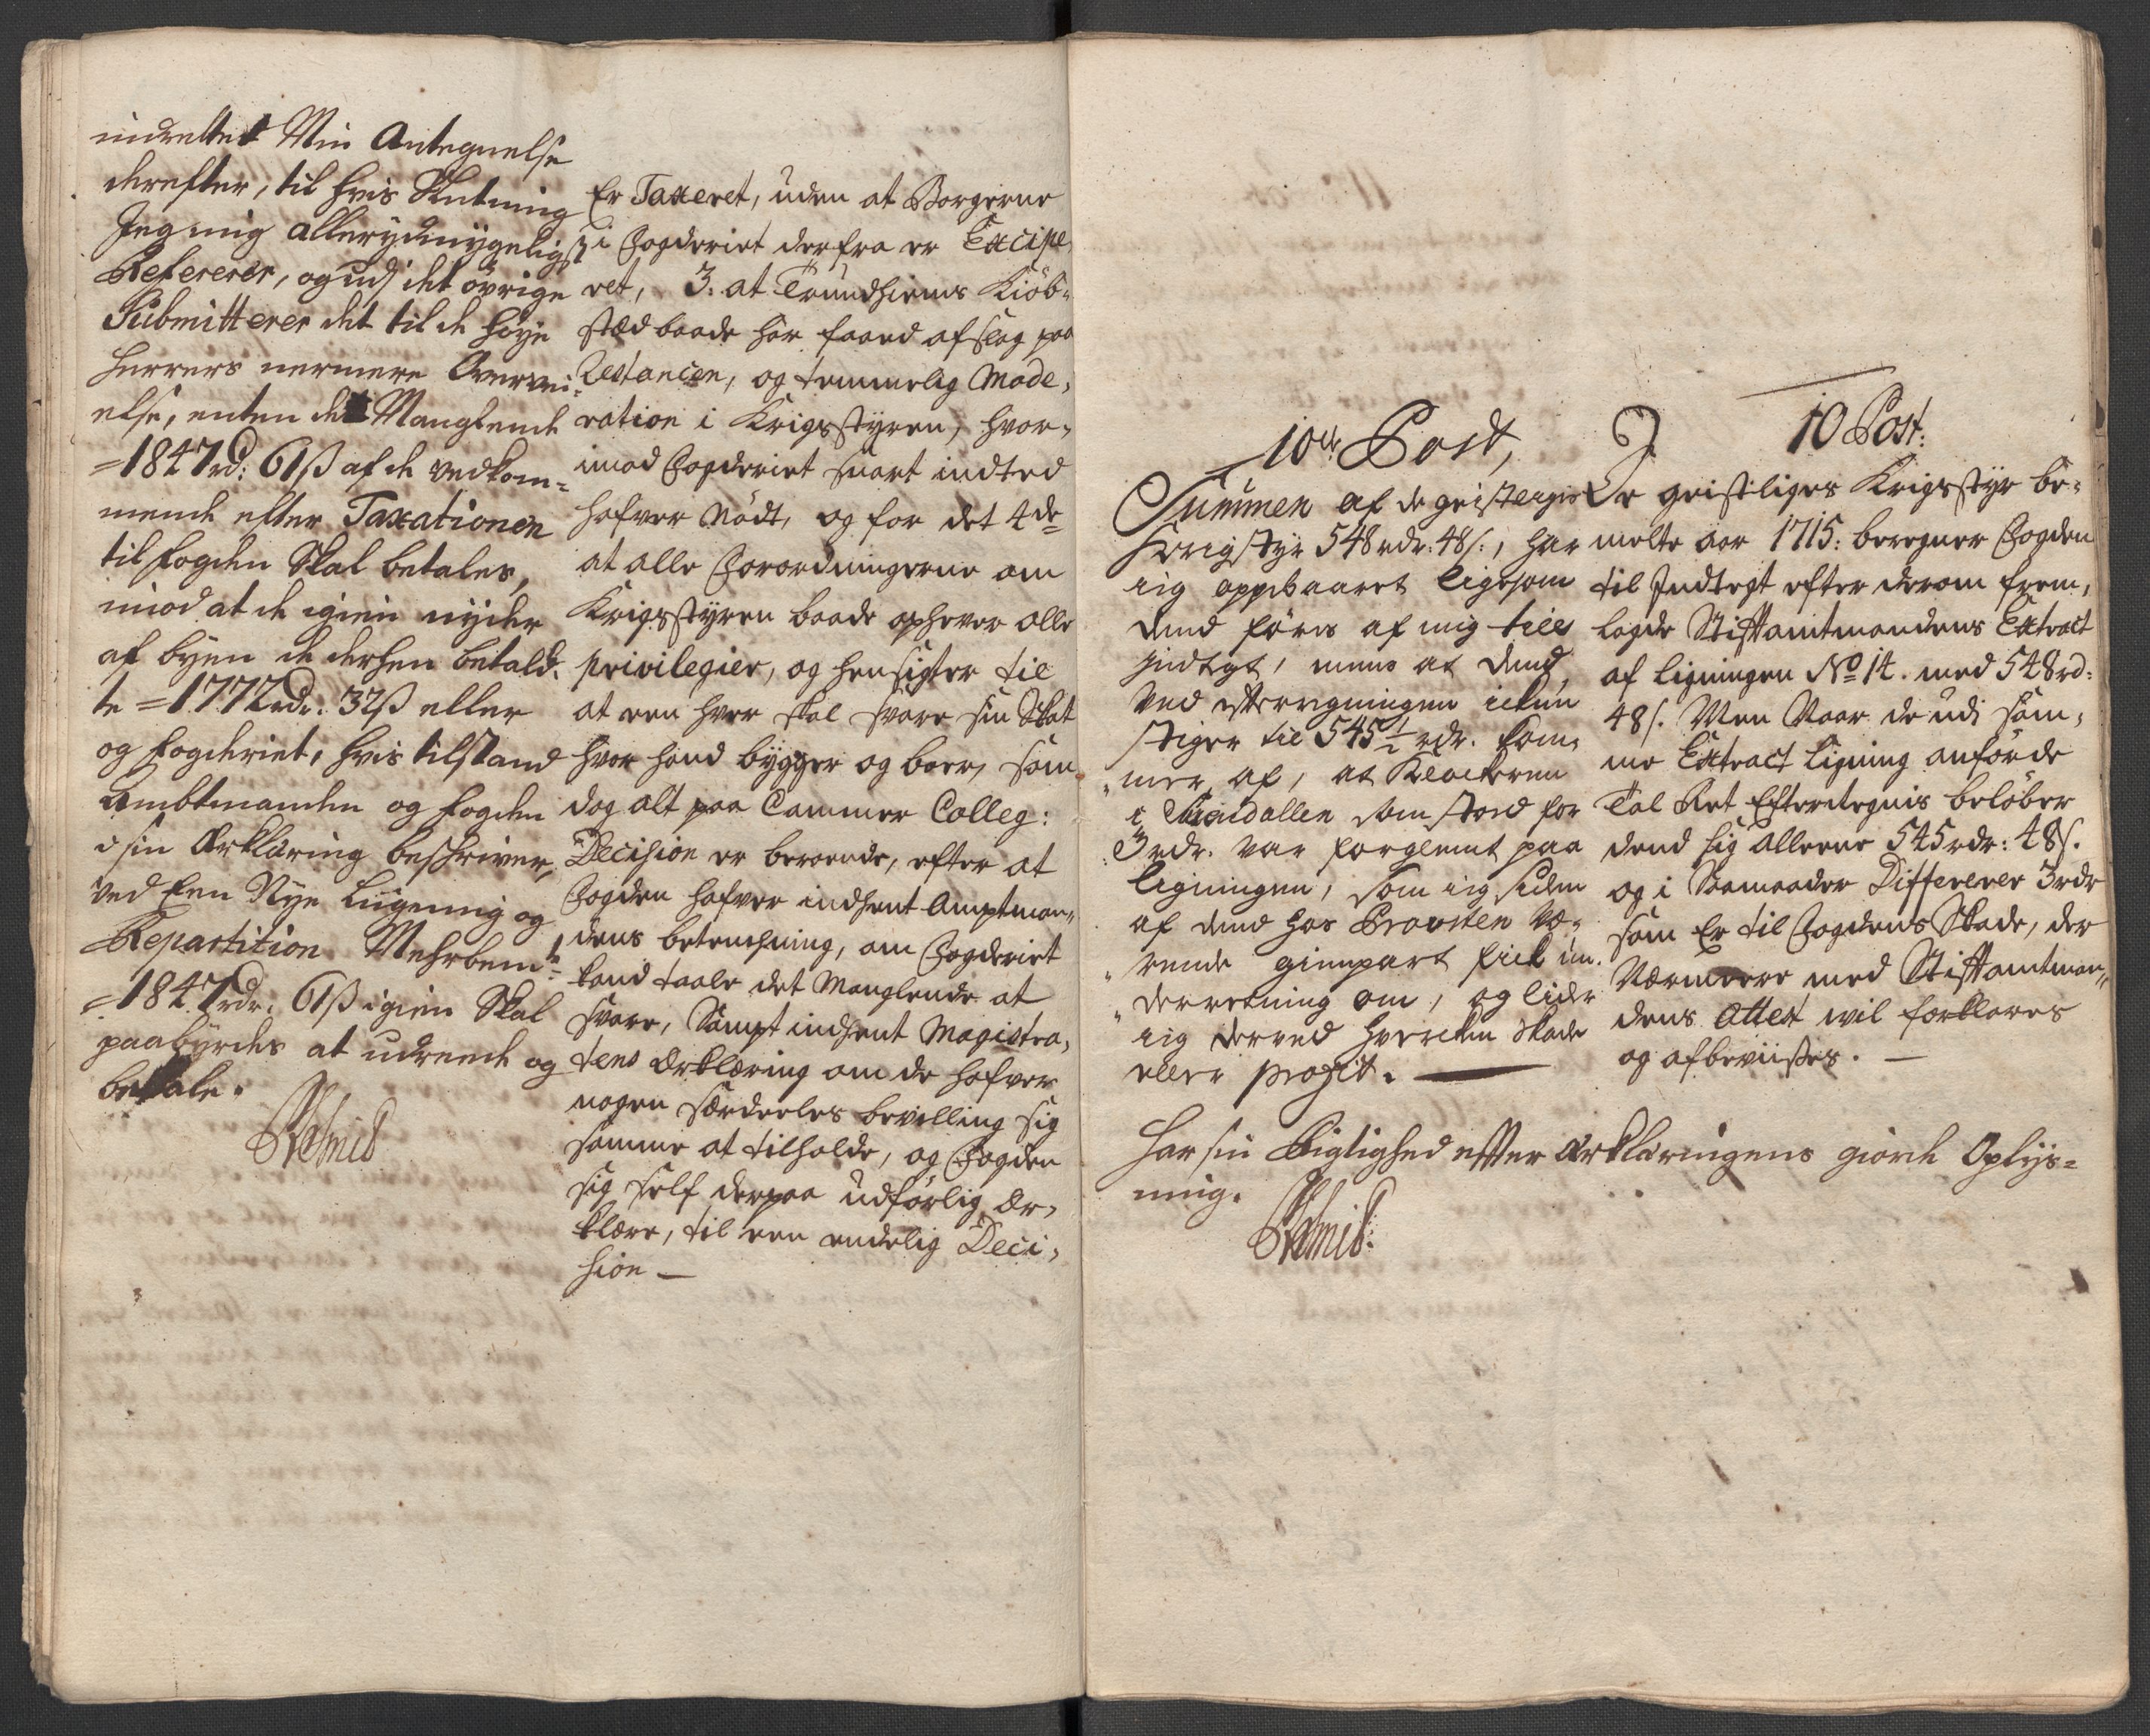 indrettet Min Antegnelse
derefter, til hvis Slutning
Jeg mig allerydmygeligst
Refererer, og udj det övrige
Submitterer det til de høye
Herrers nermere Overvei-
else, enten det Manglende
=1847rd: 61ß af de vedkom=
mende efter Taxationen
til fogden Skal betales,
imod at de igien nyder
af byen de derhen betald-
te =1772rdr: 32ß eller
og fogderiet, hvis tilstand
Ambtmanden og fogden
i sin Erklæring beskriver,
ved Een Nye Ligning og
Repartition Mehrbemte
=1847rdr: 61ß igien Skal
paabyrdes at udreede og
betale.
Er Taxeret, uden at Borgerne
i Fogderiet derfra er Excipe,
ret, 3. at Trundhiems Kiöb-
stæd baade har faaed afslag paa
Restancen, og temmelig Mode,
ration i Krigsstyren, hvor-
imod Fogderiet snart indted
hafver Nödt, og for det 4de
at alle Forordningerne om
Krigsstyren baade ophever alle
privilegier, og hensigter til
at een hver skal svare sin Skat
hvor hand bygger og boer, som
dog alt paa Cammer Colleg:
Decision er beroende, efter at
Fogden hafver indhent Amptman-
dens betenchning, om Fogderiet
kand taale det Manglende at
svare, Sampt indhent Magistra,
tens Erklæring om de hafver
nogen særdeeles bevilling sig
samme at tilholde, og Fogden
sig self derpaa udførlig Er,
klære, til een endelig Deci,
sion —
10de Post,
Summen af de geistliges
Krigstyr 548rdr: 48s:, har
ieg oppebaaret ligesom
dend föris af mig till
Indtegt, mens at dend
ved efterregningen ickun
stiger til 545½ rdr. kom-
mer af, at Klockeren
i som stod for
3rdr. var forglemt paa
ligningen, som ieg siden
af dend hos Provsten væ-
rende gienpart fick un-
derretning om, og lider
ieg derved hvercken skade
eller profit. —
10 Post:
De geistliges Krigsstyr be-
melte aar 1715: beregner Fogden
til Indtegt efter derom frem,
lagde Stiftamtmandens Extract
af Ligningen No 14. med 548rd:
48s. Men Naar de udi sam,
me Extract Ligning anförde
Tal Ret Efterregnis beløber
dend sig alleene 545rdr: 48s.
og i Saamaader Differerer 3rdr
som Er til Fogdens Skade, der
Nærmere med Stiftamtman-
dens Attest vil forklares
og afbeviises. —
Har sin Rigtighed efter Erklæringens giorde Oplys=
ning.